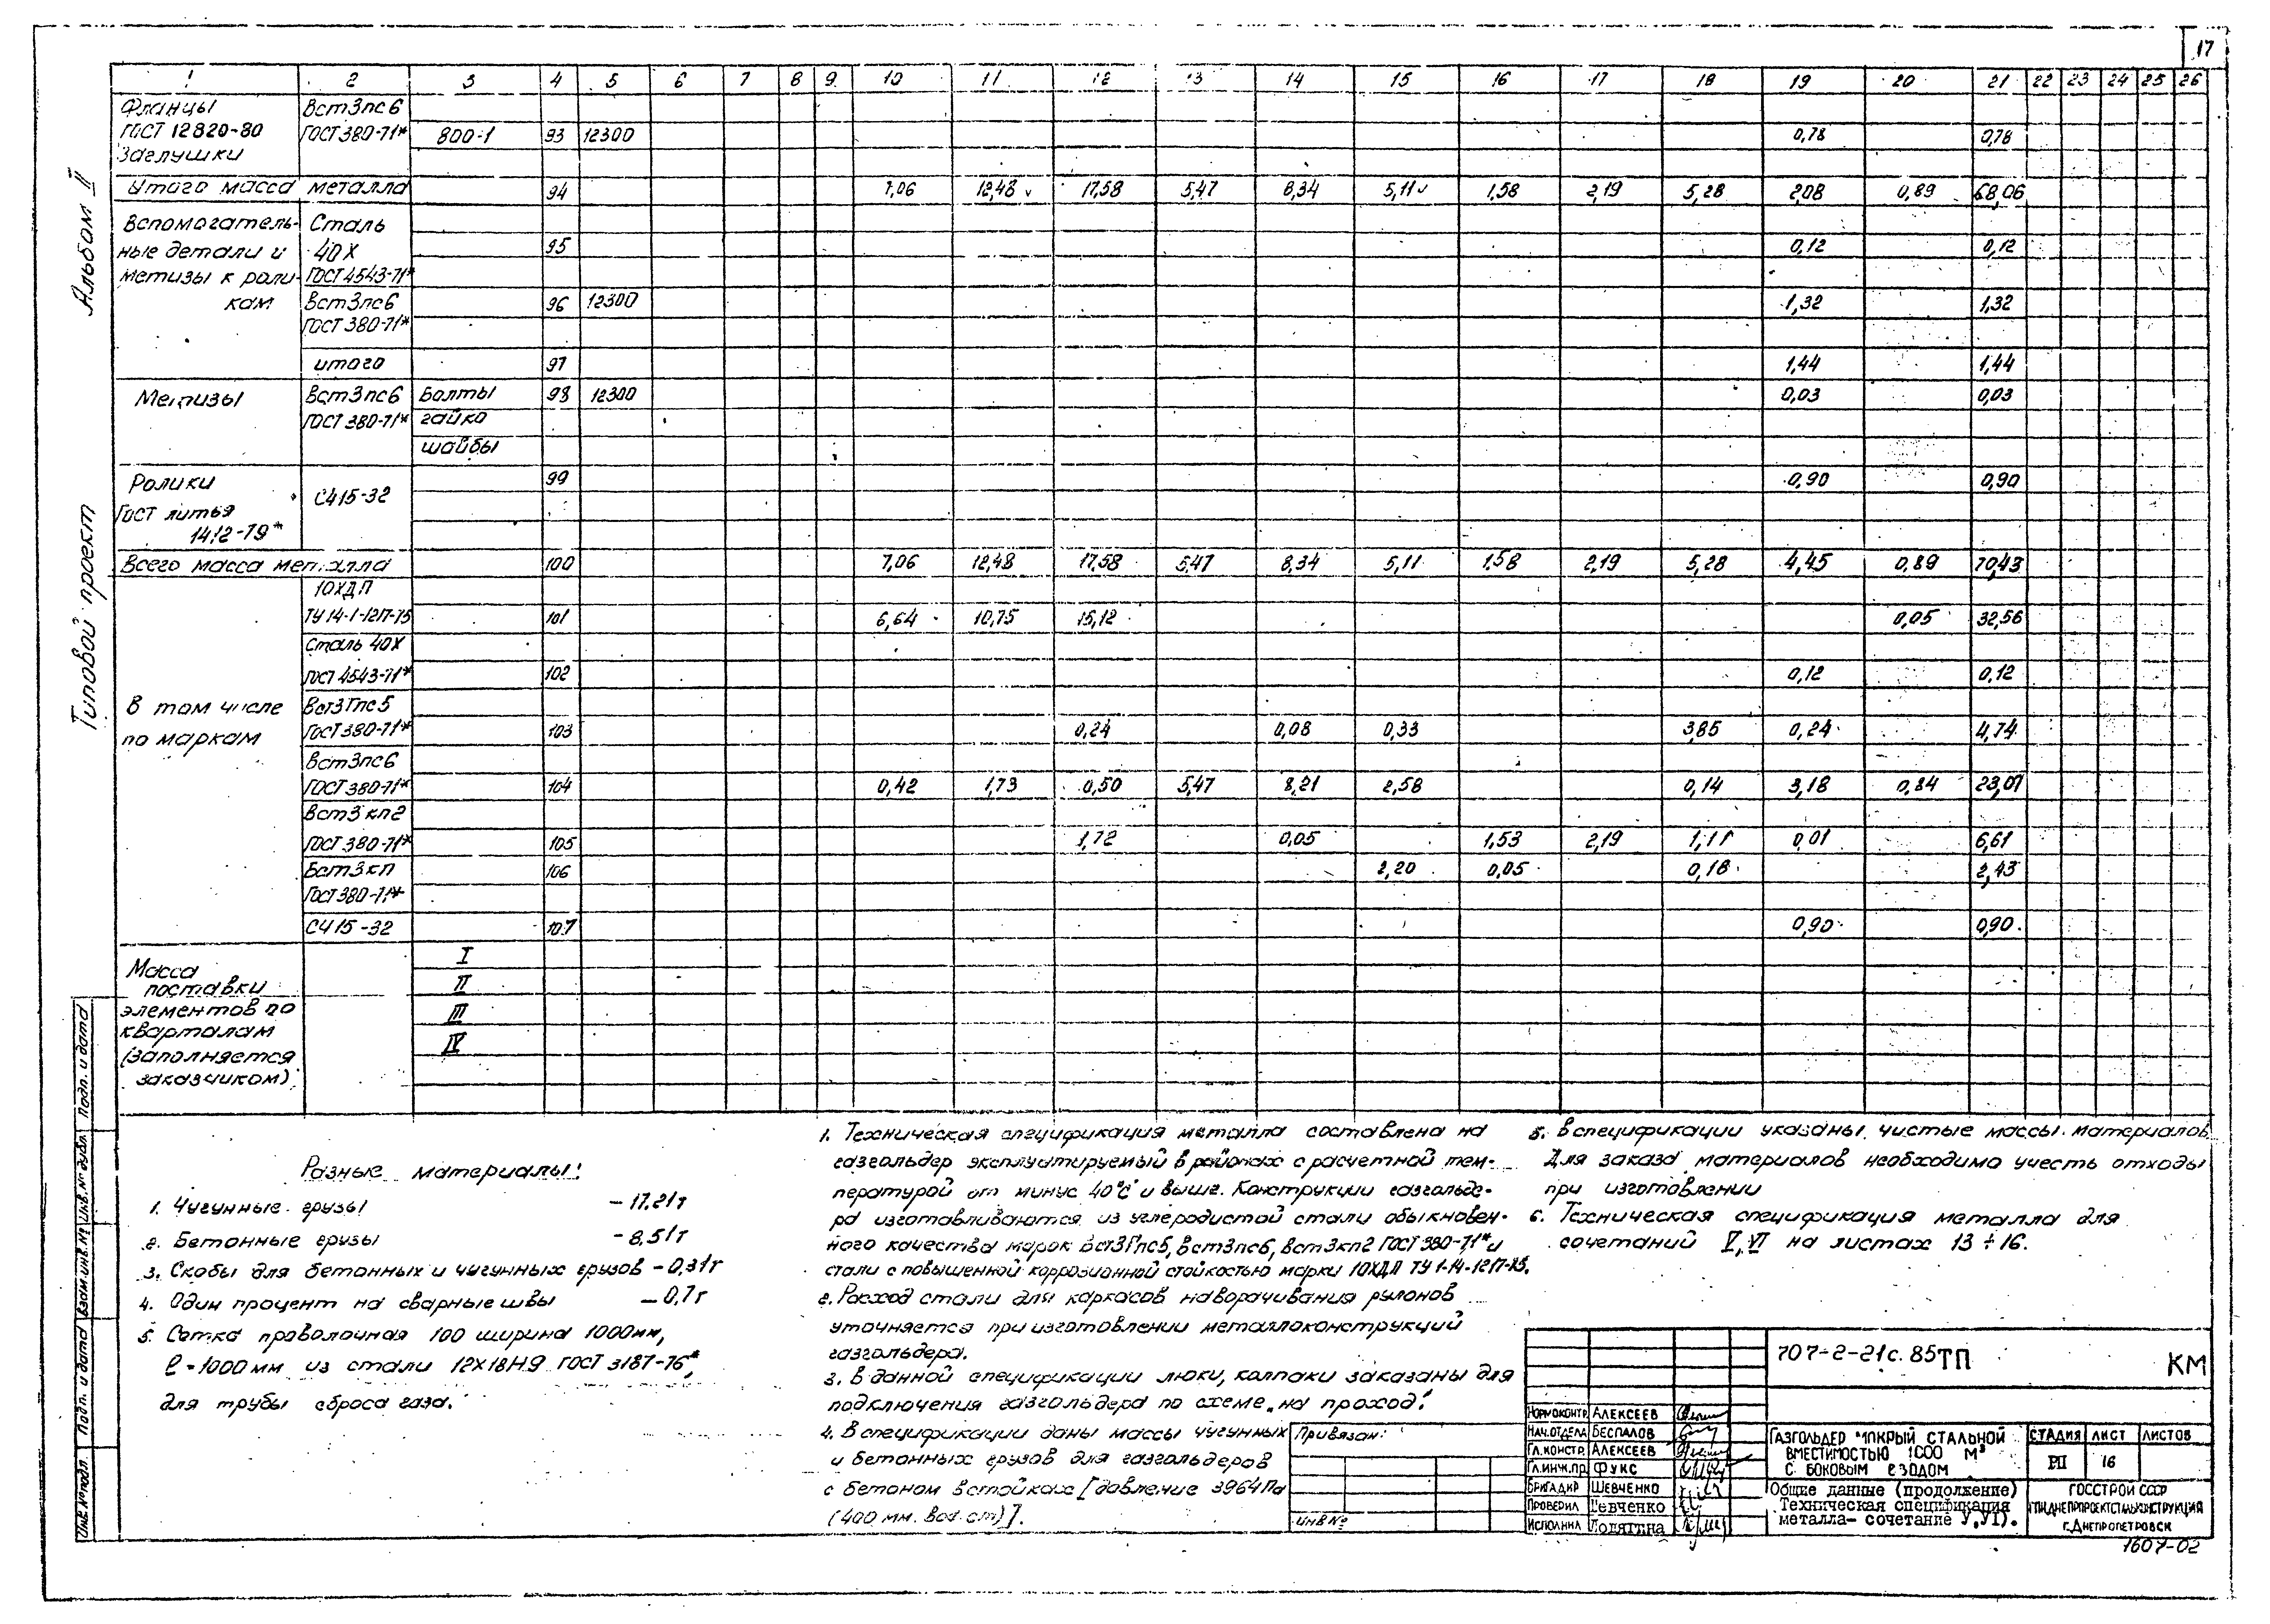 17
Альбом II
Типовой проект
1 2 3 4 5 6 7 8 9 10 11 12 13 14 15 16 17 18 19 20 21 22 23 24 25 26
Фланцы Вст3пс6
ГОСТ 12820-80 ГОСТ 380-71* 800-1 93 12300 0,78 0,78
Заглушки
Итого масса металла 94 7,06 12,48 17,58 5,47 8,34 5,11 1,58 2,19 5,28 2,08 0,89 68,06
Вспомогатель- Сталь
ные детали и 40Х 95 0,12 0,12
метизы к роли- ГОСТ 4543-71*
кам Вст3пс6 96 12300 1,32 1,32
ГОСТ 380-71*
итого 97 1,44 1,44
Метизы Вст3пс6 Болты 98 12300 0,03 0,03
ГОСТ 380-71* гайко
шайбы
Ролики 99 0,90 0,90
СЧ15-32
ГОСТ литья
1412-79*
Всего масса металла 100 7,06 12,48 17,58 5,47 8,34 5,11 1,58 2,19 5,28 4,45 0,89 70,43
10ХДП
ТУ14-1-1217-75 101 6,64 10,75 15,12 0,05 32,56
Сталь 40Х
ГОСТ 4543-71* 102 0,12 0,12
В том числе Вст3Гпс5
по маркам ГОСТ 380-71* 103 0,24 0,08 0,33 3,85 0,24 4,74
Вст3пс6
ГОСТ 380-71* 104 0,42 1,73 0,50 5,47 8,21 2,58 0,14 3,18 0,84 23,07
Вст3кп2
ГОСТ 380-71* 105 1,72 0,05 1,53 2,19 1,11 0,01 6,61
Бст3кп 106 2,20 0,05 0,18 2,43
ГОСТ 380-71*
СЧ15-32 107 0,90 0,90
Масса I
поставки II
элементов по III
кварталам IV
(заполняется
заказчиком)
Разные материалы:
1. Чугунные грузы - 17.21т
2. Бетонные грузы - 8.51т
3. Скобы для бетонных и чугунных грузов - 0,31т
4. Один процент на сварные швы - 0,7т
5. Сетка проволочная 100 ширина 1000мм,
ℓ=1000мм из стали 12Х18Н9 ГОСТ 3187-76*,
для трубы сброса газа.
1. Техническая спецификация металла составлена на
газгольдер эксплуатируемый в районах с расчетной тем-
пературой от минус 40°С и выше. Конструкции газгольде-
ра изготавливаются из углеродистой стали обыкновен-
ного качества марок Вст3Гпс5, Вст3пс6, Вст3кп2 ГОСТ 380-71* и
стали с повышенной коррозионной стойкостью марки 10ХДП ТУ 1-14-1217-75.
2. Расход стали для каркасов наворачивания рулонов
уточняется при изготовлении металлоконструкций
газгольдера.
3. В данной спецификации люки, колпаки заказаны для
подключения газгольдера по схеме „на проход".
4. В спецификации даны массы чугунных
и бетонных грузов для газгольдеров
с бетоном в стойках [давление 3964Па
(400 мм. вод. ст)].
5. В спецификации указаны чистые массы материалов
Для заказа материалов необходимо учесть отходы
при изготовлении
6. Техническая спецификация металла для
сочетаний V, VI на листах 13÷16.
Привязан:
ИНВ №
707-2-21с.85ТП КМ
Нормоконтр. Алексеев
Нач.отдела Беспалов
Гл.констр. Алексеев
Гл.инж.пр. Фукс
Бригадир Шевченко
Проверил Шевченко
Исполнил
Газгольдер мокрый стальной
вместимостью 1000 м³
с боковым вводом
Стадия Лист Листов
РП 16
Общие данные (продолжение)
Техническая спецификация
металла- сочетание У,УI).
ГОССТРОЙ СССР
ГПИДНЕПРПРОЕКТСТАЛЬКОНСТРУКЦИЯ
г.Днепропетровск
1607-02
Инв.№подл. Подп. и дата Взам.инв.№ Инв.№дубл. Подп. и дата